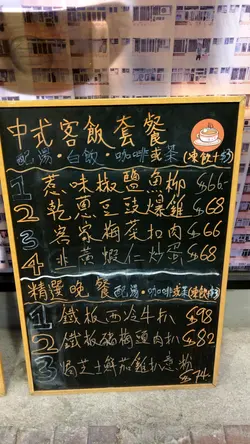 中式客飯套餐
配湯・白飯・咖啡或茶(凍飲+3)
1 惹味椒鹽魚柳 $66
2 乾蔥豆豉爆雞 $68
3 客家梅菜扣肉 $66
4 韭黃蝦仁炒蛋 $68
精選晚餐 配湯・咖啡或茶(凍飲+3)
1 鐵板西冷牛扒 $98
2 鐵板豬梅頭肉扒 $82
3 焗芝士鮮茄雞扒意粉 $74